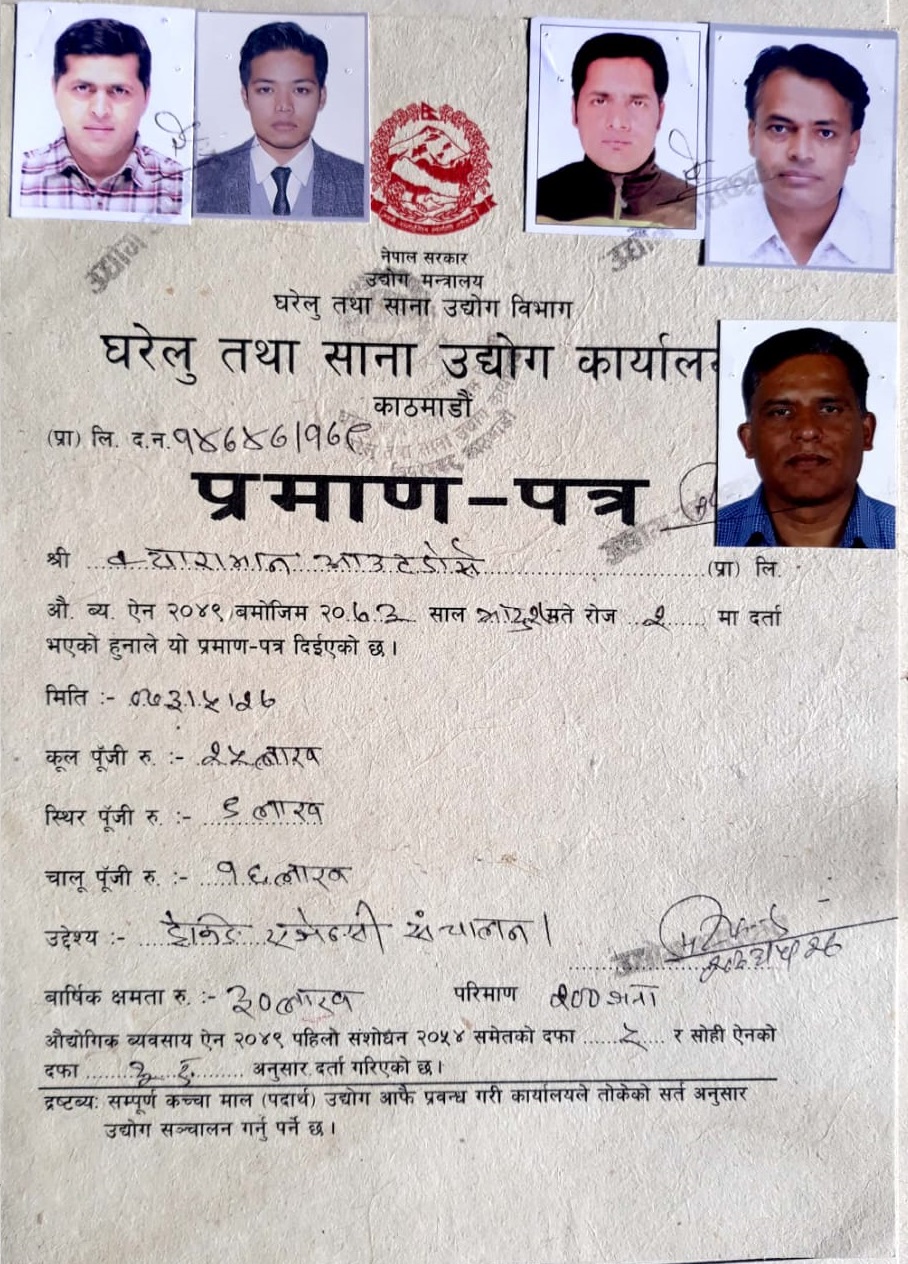 नेपाल सरकार
उद्योग मन्त्रालय
घरेलु तथा साना उद्योग विभाग
घरेलु तथा साना उद्योग कार्यालय
काठमाडौं
(प्रा) लि. द.न.
प्रमाण-पत्र
श्री क्याराभान आउटडोर्स (प्रा) लि.
औ. ब्य. ऐन २०४९ बमोजिम २०७३ साल गते रोज २ मा दर्ता
भएको हुनाले यो प्रमाण-पत्र दिईएको छ।
मिति :- ०७३।५।२७
कूल पूँजी रु. :- २५ लाख
स्थिर पूँजी रु. :- ९ लाख
चालू पूँजी रु. :- १६ लाख
उद्देश्य :- ट्रेकिङ एजेन्सी संचालन।
बार्षिक क्षमता रु. :- ३० लाख परिमाण २०० जना
औद्योगिक ब्यवसाय ऐन २०४९ पहिलो संशोधन २०५४ समेतको दफा र सोही ऐनको
दफा अनुसार दर्ता गरिएको छ।
द्रष्टब्य: सम्पूर्ण कच्चा माल (पदार्थ) उद्योग आफै प्रवन्ध गरी कार्यालयले तोकेको सर्त अनुसार
उद्योग सञ्चालन गर्नु पर्ने छ।